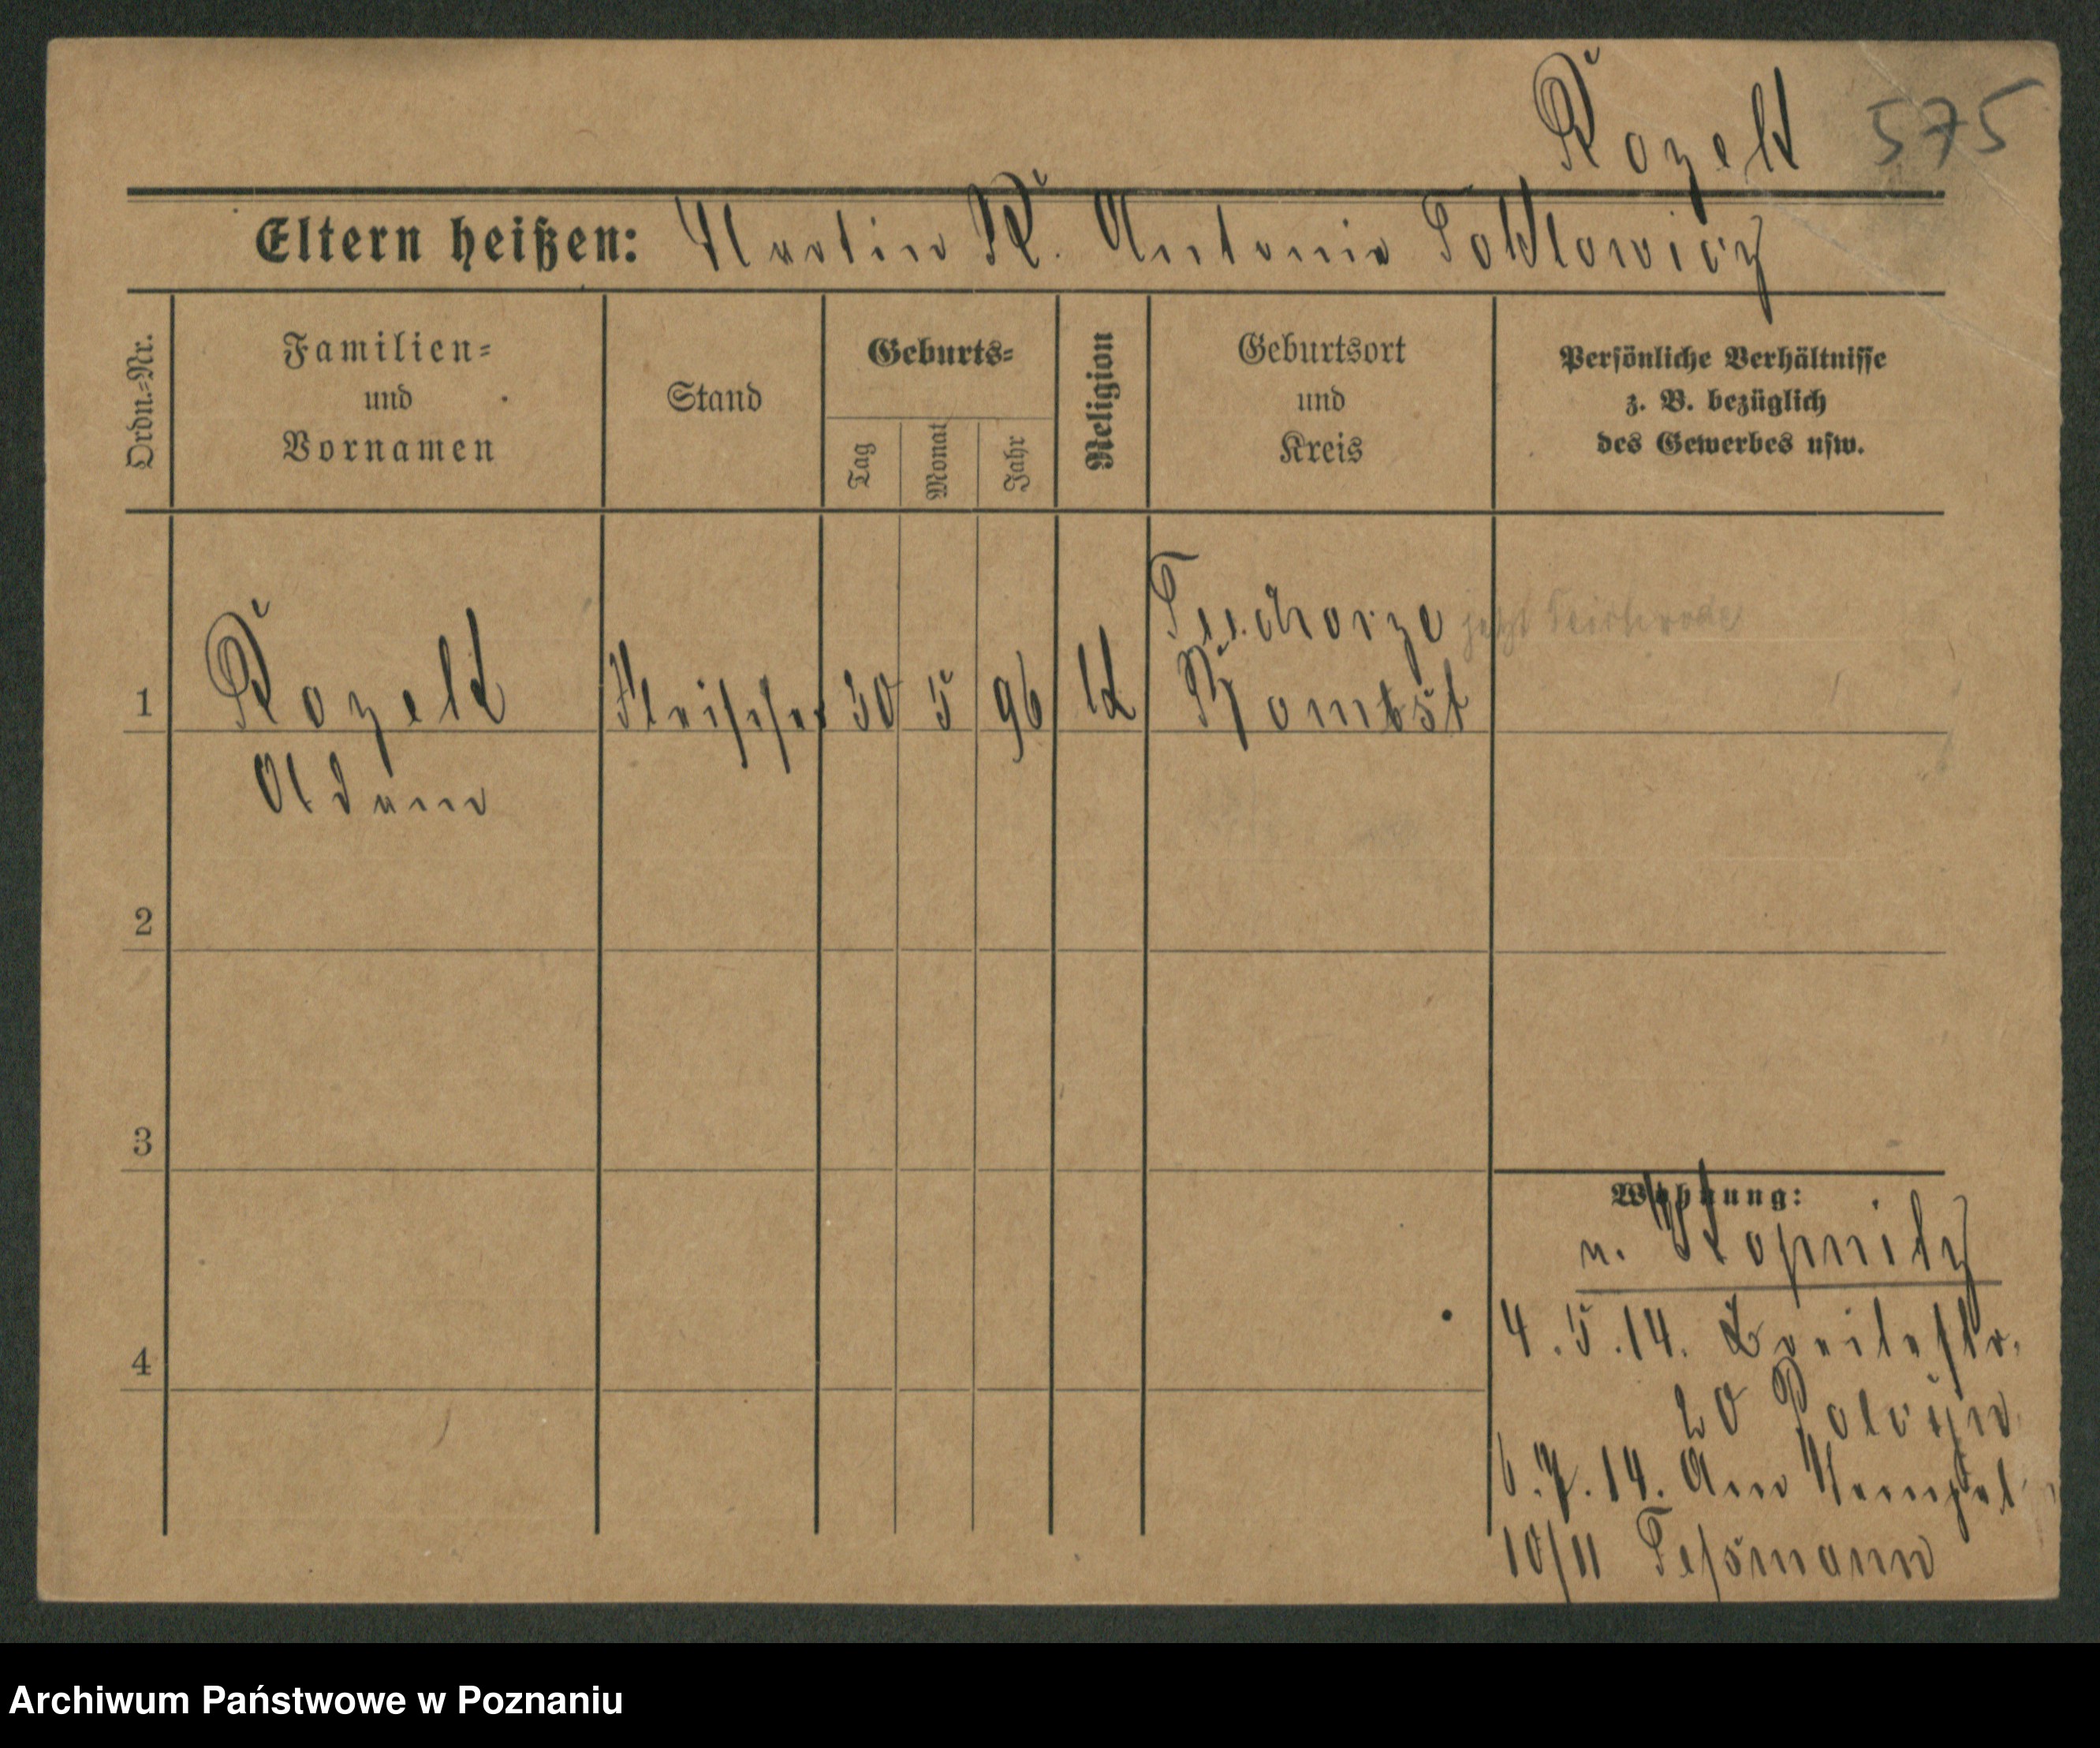 Rozelt 575
Eltern heißen: Martin R. Antonie
Ordn.-Nr.
Familien-
und
Vornamen
Stand
Geburts-
Tag
Monat
Jahr
Religion
Geburtsort
und
Kreis
Persönliche Verhältnisse
z. B. bezüglich
des Gewerbes usw.
Tuchorze jetzt Teichrode
1 Rozelt Fleischer 30 5 96 K Bomst
Adam
2
3
Wohnung:
n. Kopnitz
4.5.14. Breitestr.
4
20
6.7.14. Am
10/11 Teßmann
Archiwum Państwowe w Poznaniu